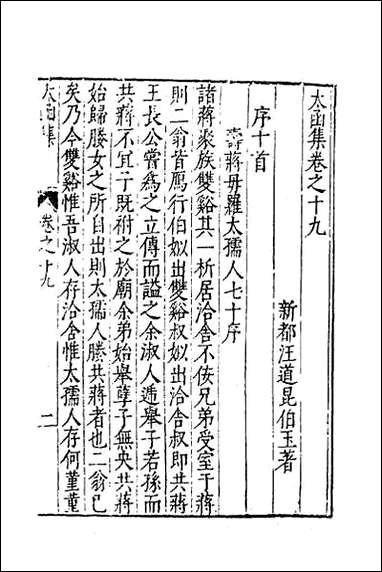 太函集卷之十九
新都汪道昆伯玉著
序十首
壽蔣毋羅太孺人七十序
諸蔣聚族雙谿其一析居洽舍不佞兄弟受室于蔣
則二翁皆厲行伯姒出雙谿叔姒出洽舍叔即共蔣
王長公嘗爲之立傳而謚之余淑人遞舉子若孫而
共蔣不宜子既祔之於廟余弟始舉孽子無央共蔣
始歸媵女之所自出則太孺人媵共蔣者也二翁已
矣乃今雙谿惟吾淑人存洽舍惟太孺人存何菫菫
太函集
卷之十九
二